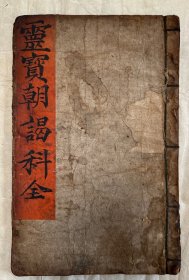 靈寶朝謁科全